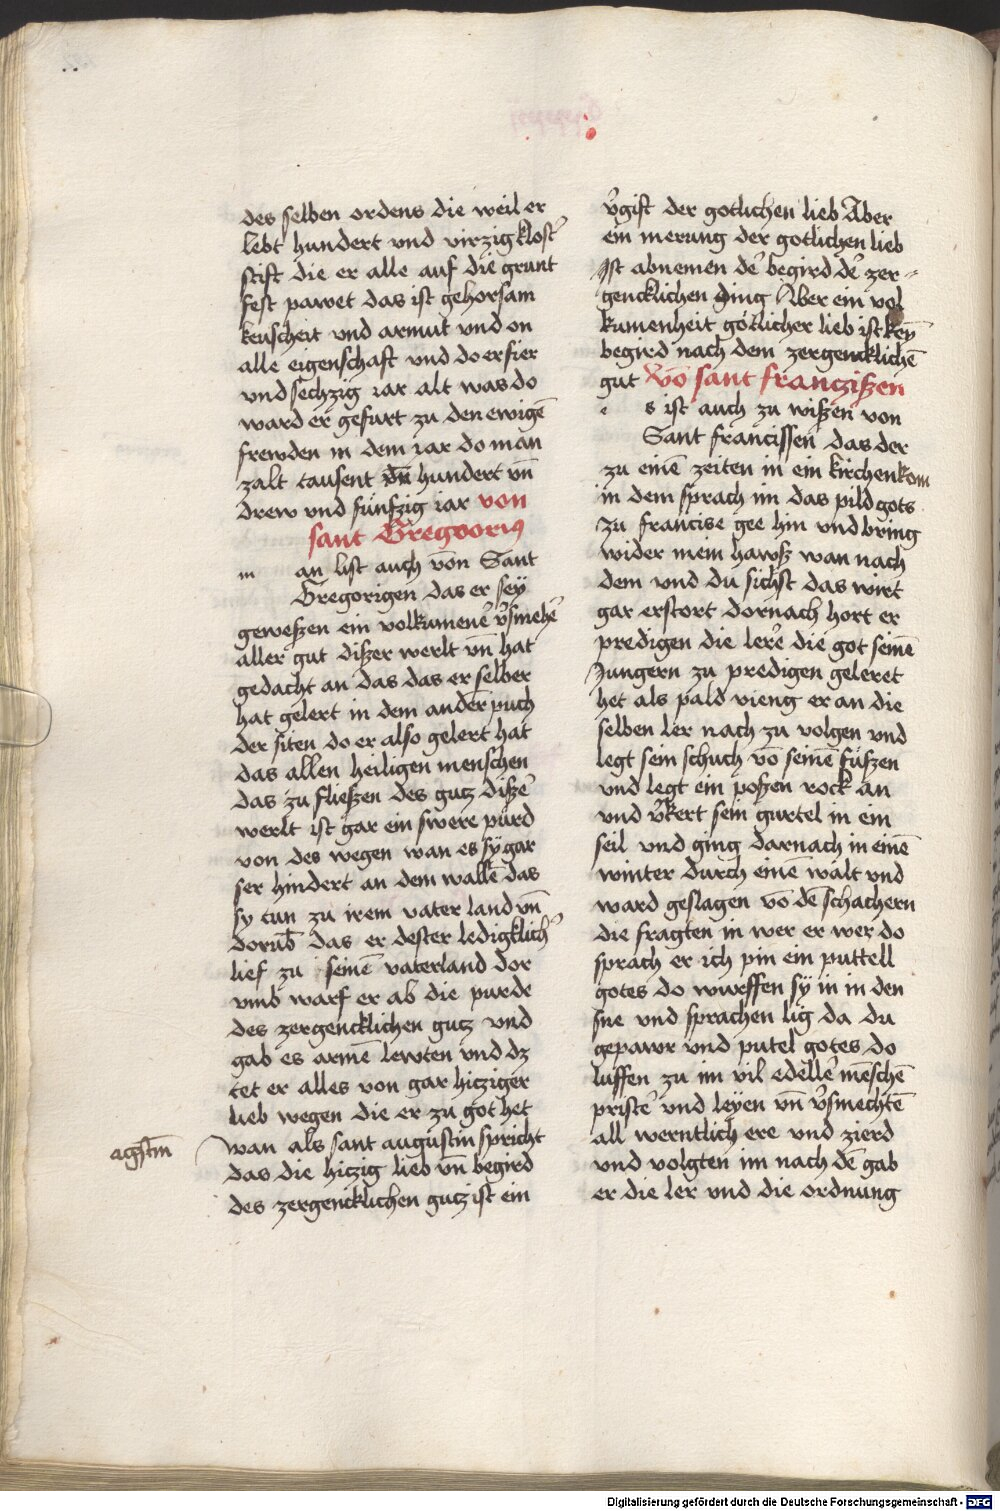 des selben ordens die weil er
lebt hundert vnd virzig klost̉
stift die er alle auf die grunt
fest pawet das ist gehorsam
keuscheit vnd armut vnd on
alle eigenschaft vnd do er fier
vnd sechzig iar alt was do
ward er gefurt zu den ewigē
frewden in dem iar do man
zalt tausent hundert vn̄
drew vnd funfzig iar von
sant Gregoorius
m an list auch von Sant
Gregorigen das er seÿ
geweßen ein volkumener̉ v̉smeher̉
aller gut dißer werlt vn̄ hat
gedacht an das das er selber
hat gelert in dem ander puch
der siten do er also gelert hat
das allen heiligen menschen
das zu fließen des gutz dißẻ
werlt ist gar ein swere purd
von des wegen wan es sÿ gar
ser hindert an dem wallē das
sy tun zu irem vater land vn̄
dorub̄ das er dester ledigklich̉
lief zu seinē vaterland dor
vmb warf er ab die purde
des zergencklichen gutz vnd
gab es armē lewten vnd dz
tet er alles von gar hicziger
lieb wegen die er zu got het
agstin
wan als sant augustin spricht
das die hiczig lieb vn̄ begird
des zergencklichen gutz ist ein
v̉gift der gotlichen lieb Aber
ein merung der gotlichen lieb
Ist abnemen dẻ begird dẻ zer-
gencklichen ding Aber ein vol
kumenheit gotlicher lieb ist keÿ
begird nach dem zergencklichē
gut Vō sant franczißen
e s ist auch zu wißen von
Sant francissen das der
zu einē zeiten in ein kirchen kom
in dem sprach im das pild gots
zu francise gee hin vnd bring
wider mein hawß wan nach
dem vnd du sichst das wirt
gar erstort dornach hort er
predigen die lere die got seinē
Jungern zu predigen geleret
het als pald vieng er an die
selben ler nach zu volgen vnd
legt sein schuch vō seinē fußen
vnd legt ein poßen rock an
vnd v̉kert sein gurtel in ein
seil vnd ging darnach in einē
winter durch einē walt vnd
ward geslagen vō dē schachern
die fragten in wer er wer do
sprach er ich pin ein puttell
gotes do wurffen sÿ in in den
sne vnd sprachen lig da du
gepawr vnd putel gotes do
luffen zu im vil edellẻ mēschē
pristẻ vnd leÿen vn̄ v̉smechtē
all werntlich ere vnd zierd
vnd volgten im nach dē gab
er die ler vnd die ordnung
Digitalisierung gefördert durch die Deutsche Forschungsgemeinschaft - DFG